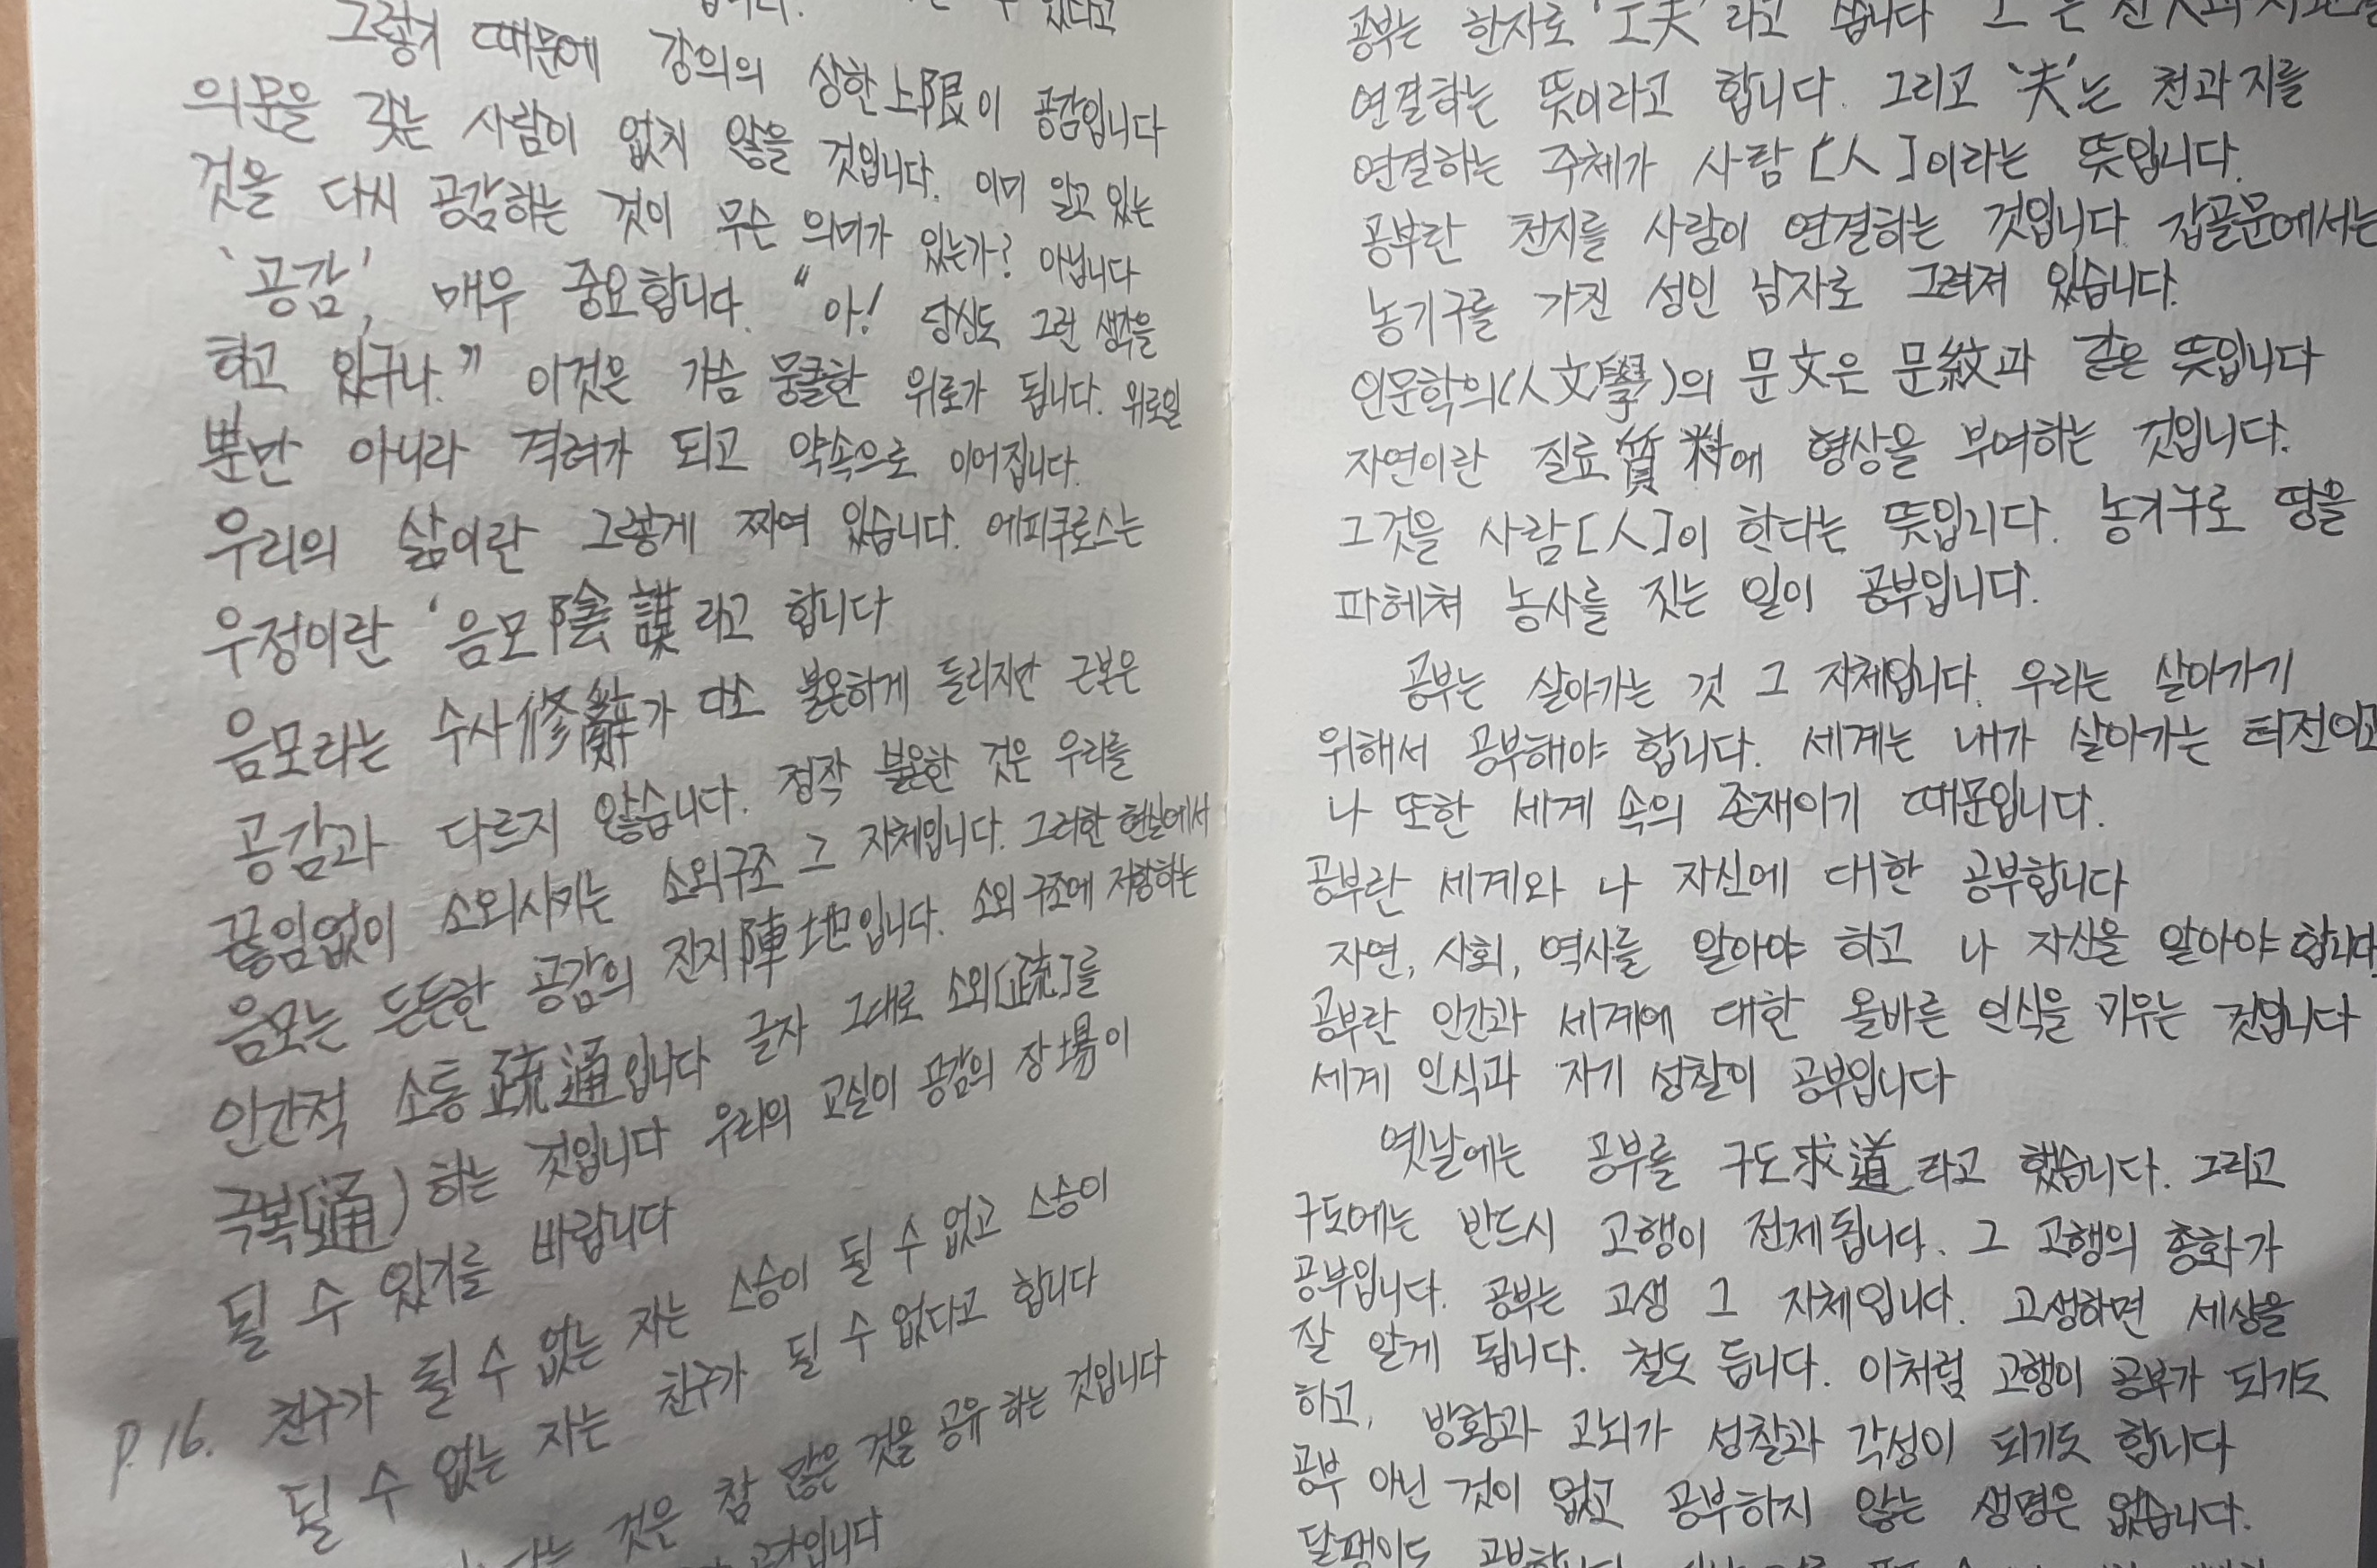 있다고
그렇기 때문에 강의의 상한上限이 공감입니다
의문을 갖는 사람이 없지 않을 것입니다. 이미 알고 있는
것을 다시 공감하는 것이 무슨 의미가 있는가? 아닙니다
'공감', 매우 중요합니다. "아! 당신도 그런 생각을
하고 있구나." 이것은 가슴 뭉클한 위로가 됩니다. 위로일
뿐만 아니라 격려가 되고 약속으로 이어집니다.
우리의 삶이란 그렇게 짜여 있습니다. 에피쿠로스는
우정이란 '음모陰謀라고 합니다
음모라는 수사修辭가 다소 불온하게 들리지만 근본은
공감과 다르지 않습니다. 정작 불온한 것은 우리를
끊임없이 소외시키는 소외구조 그 자체입니다. 그러한 현실에서
음모는 든든한 공감의 진지陣地입니다. 소외 구조에 저항하는
인간적 소통疏通입니다 글자 그대로 소외[疏]를
극복(通)하는 것입니다 우리의 교실이 공감의 장場이
될 수 있기를 바랍니다
P.16. 친구가 될 수 없는 자는 스승이 될 수 없고 스승이
될 수 없는 자는 친구가 될 수 없다고 합니다
것은 참 많은 것을 공유하는 것입니다
공부는 한자로 '工夫'라고 씁니다
연결하는 뜻이라고 합니다. 그리고 '夫'는 천과 지를
연결하는 주체가 사람[人]이라는 뜻입니다.
공부란 천지를 사람이 연결하는 것입니다 갑골문에서는
농기구를 가진 성인 남자로 그려져 있습니다.
인문학의(人文學)의 문文은 문紋과 같은 뜻입니다
자연이란 질료質料에 형상을 부여하는 것입니다.
그것을 사람[人]이 한다는 뜻입니다. 농기구로 땅을
파헤쳐 농사를 짓는 일이 공부입니다.
공부는 살아가는 것 그 자체입니다. 우리는 살아가기
위해서 공부해야 합니다. 세계는 내가 살아가는 터전이고
나 또한 세계 속의 존재이기 때문입니다.
공부란 세계와 나 자신에 대한 공부합니다
자연, 사회, 역사를 알아야 하고 나 자신을 알아야 합니다
공부란 인간과 세계에 대한 올바른 인식을 키우는 것입니다
세계 인식과 자기 성찰이 공부입니다
옛날에는 공부를 구도求道라고 했습니다. 그리고
구도에는 반드시 고행이 전제됩니다. 그 고행의 총화가
공부입니다. 공부는 고생 그 자체입니다. 고생하면 세상을
잘 알게 됩니다. 철도 듭니다. 이처럼 고행이 공부가 되기도
하고, 방황과 고뇌가 성찰과 각성이 되기도 합니다
공부 아닌 것이 없고 공부하지 않는 생명은 없습니다.
달팽이도 공부합니다